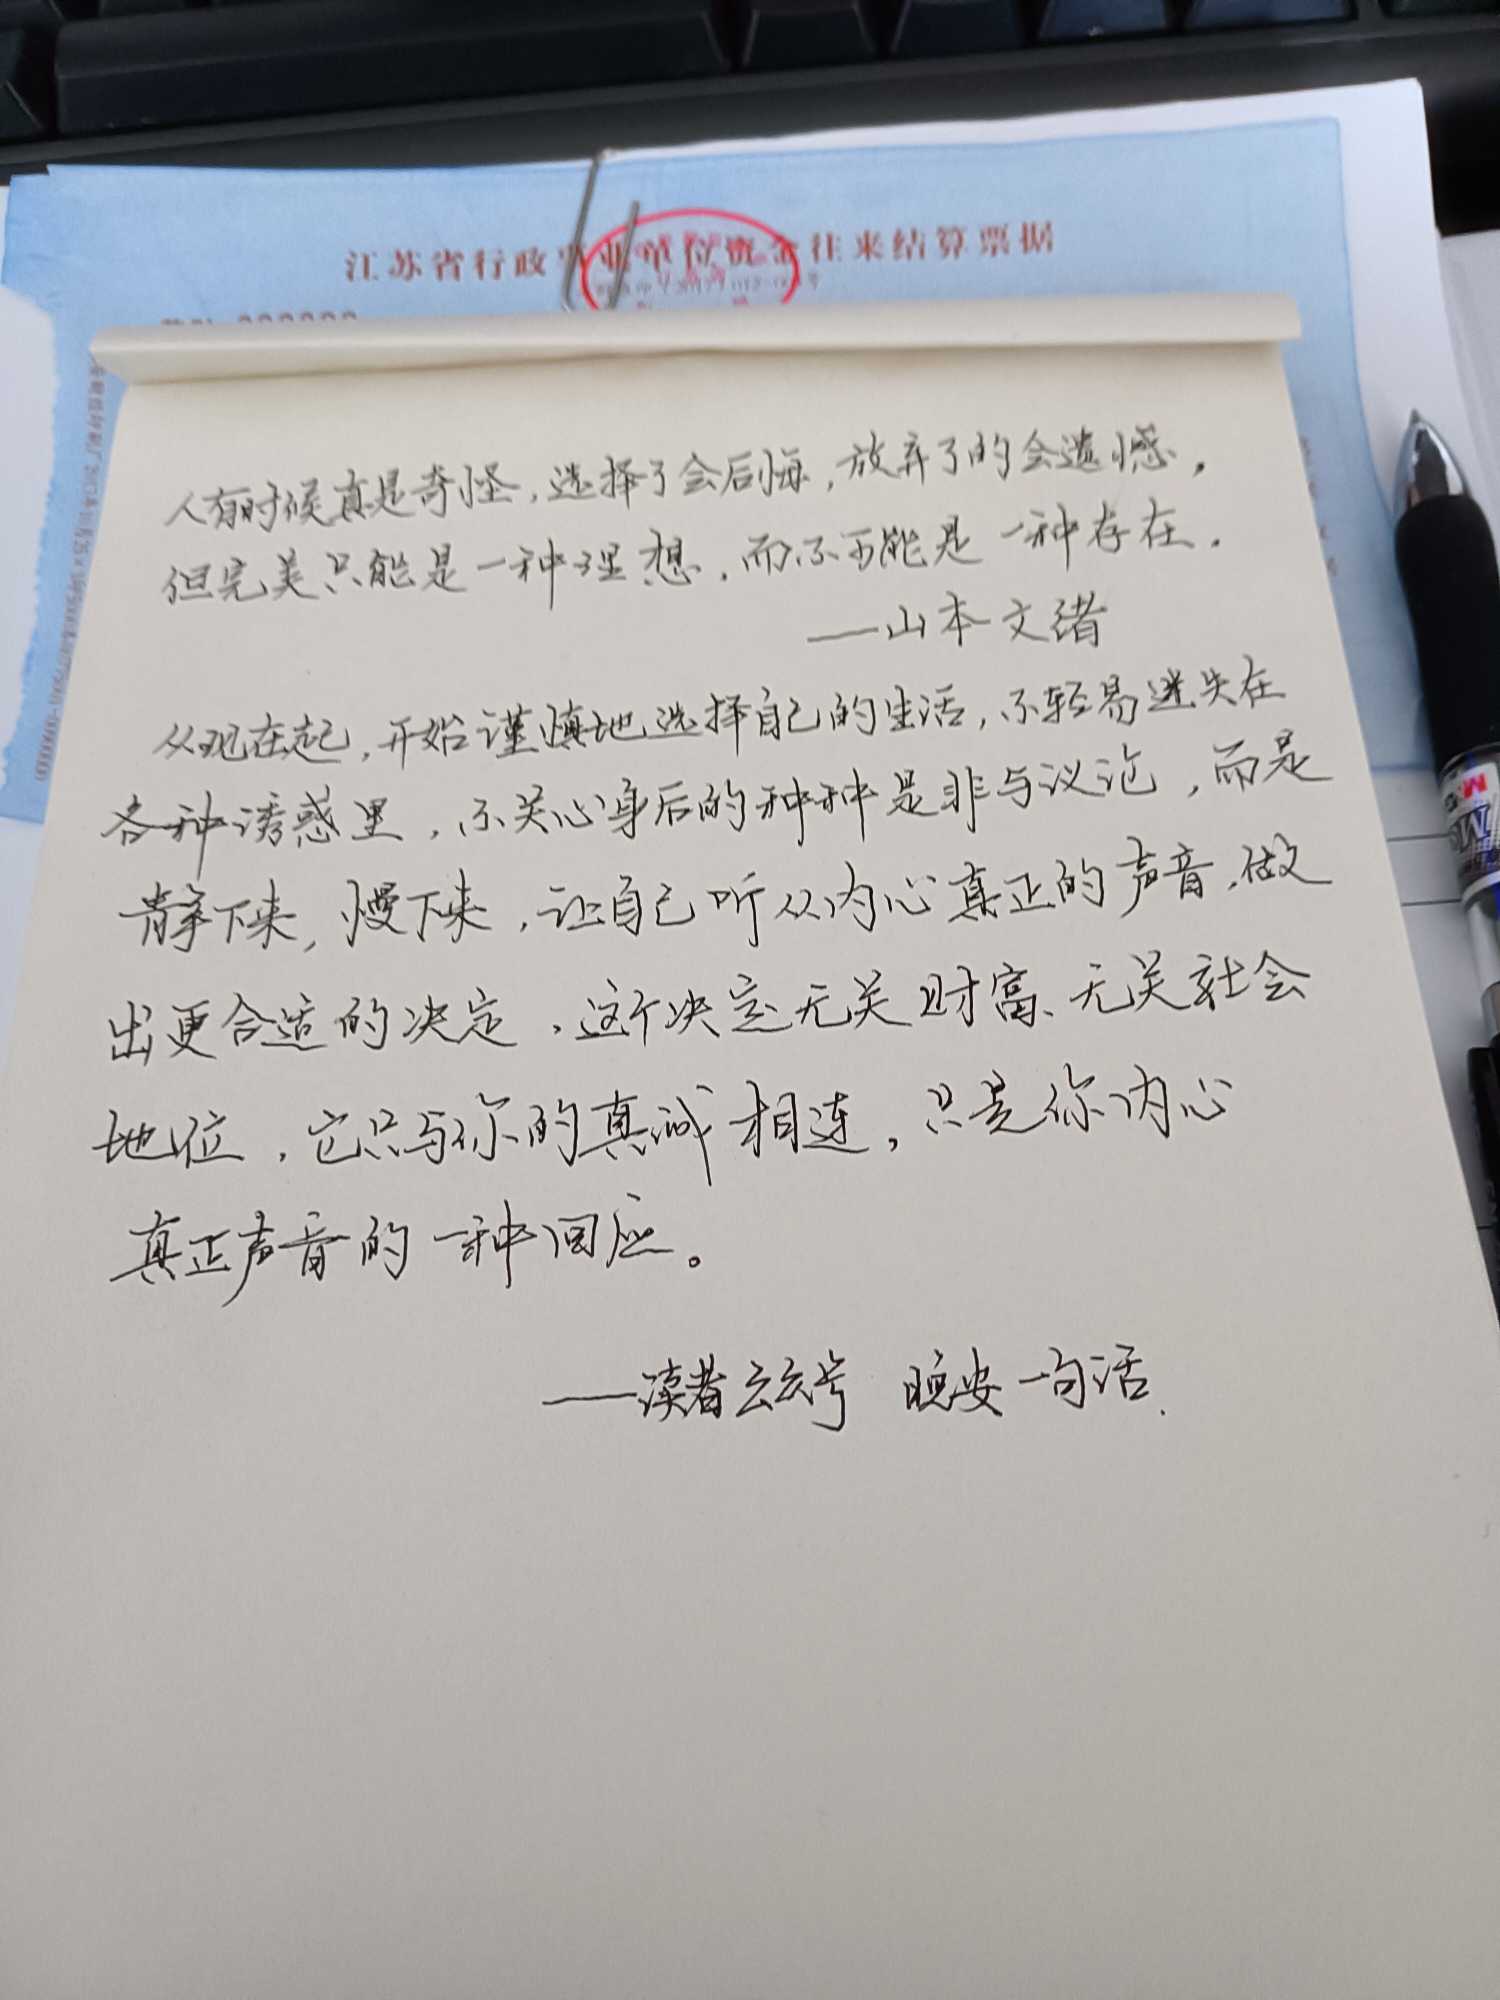 江苏省行政事业单位资金往来结算票据
人有时候真是奇怪,选择了会后悔,放弃了的会遗憾,
但完美只能是一种理想,而不可能是一种存在.
——山本文绪
从现在起,开始谨慎地选择自己的生活,不轻易迷失在
各种诱惑里,不关心身后的种种是非与议论,而是
静下来,慢下来,让自己听从内心真正的声音,做
出更合适的决定,这个决定无关财富、无关社会
地位,它只与你的真诚相连,只是你内心
真正声音的一种回应。
——读者公众号 晚安一句话.